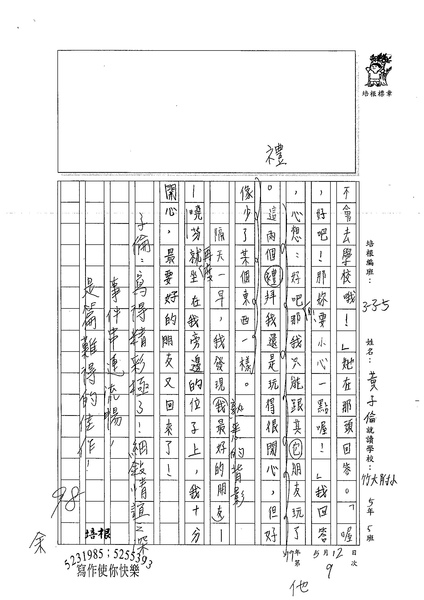 培根標章
培根編班：
335
姓名：
黃子倫
就讀學校：
竹大附小
5年5班
97年5月12日
第9次
不會去學校哦！」她在那頭回答。「喔
，好吧！那妳要小心一點喔！」我回答
，心想：好吧那我只能跟其它朋友玩了
。這兩個禮拜我還是玩得很開心，但好
像少了某個東西一樣。
隔天一早，我發現我最好的朋友—
—曉芬就坐在我旁邊的位子上，我十分
開心，最要好的朋友又回來了！
禮
再度
熟悉的背影
他
子倫：寫得精彩極了！細敘情誼之深
，事件串連流暢，
是篇難得的佳作！
98
余
培根
5231985；5255393
寫作使你快樂